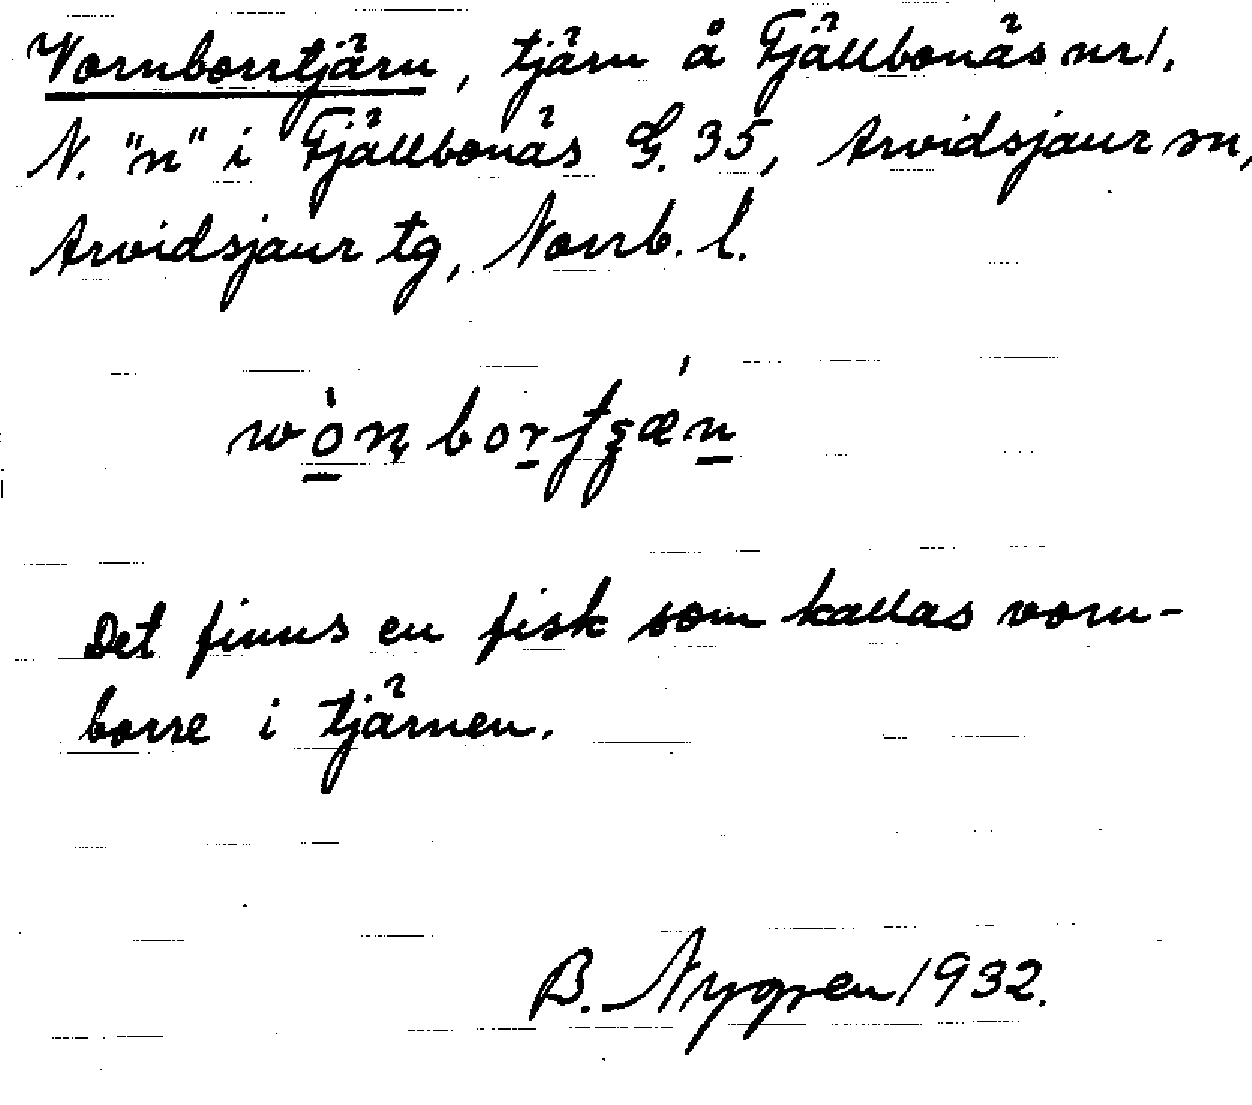 Vornborrtjärn, tjärn å Fjällbonäs nr 1.
N. "n" i Fjällbonäs G. 35, Arvidsjaur sn,
Arvidsjaur tg, Norrb. l.
Det finns en fisk som kallas vorn-
borre i tjärnen.
B. Nygren 1932.